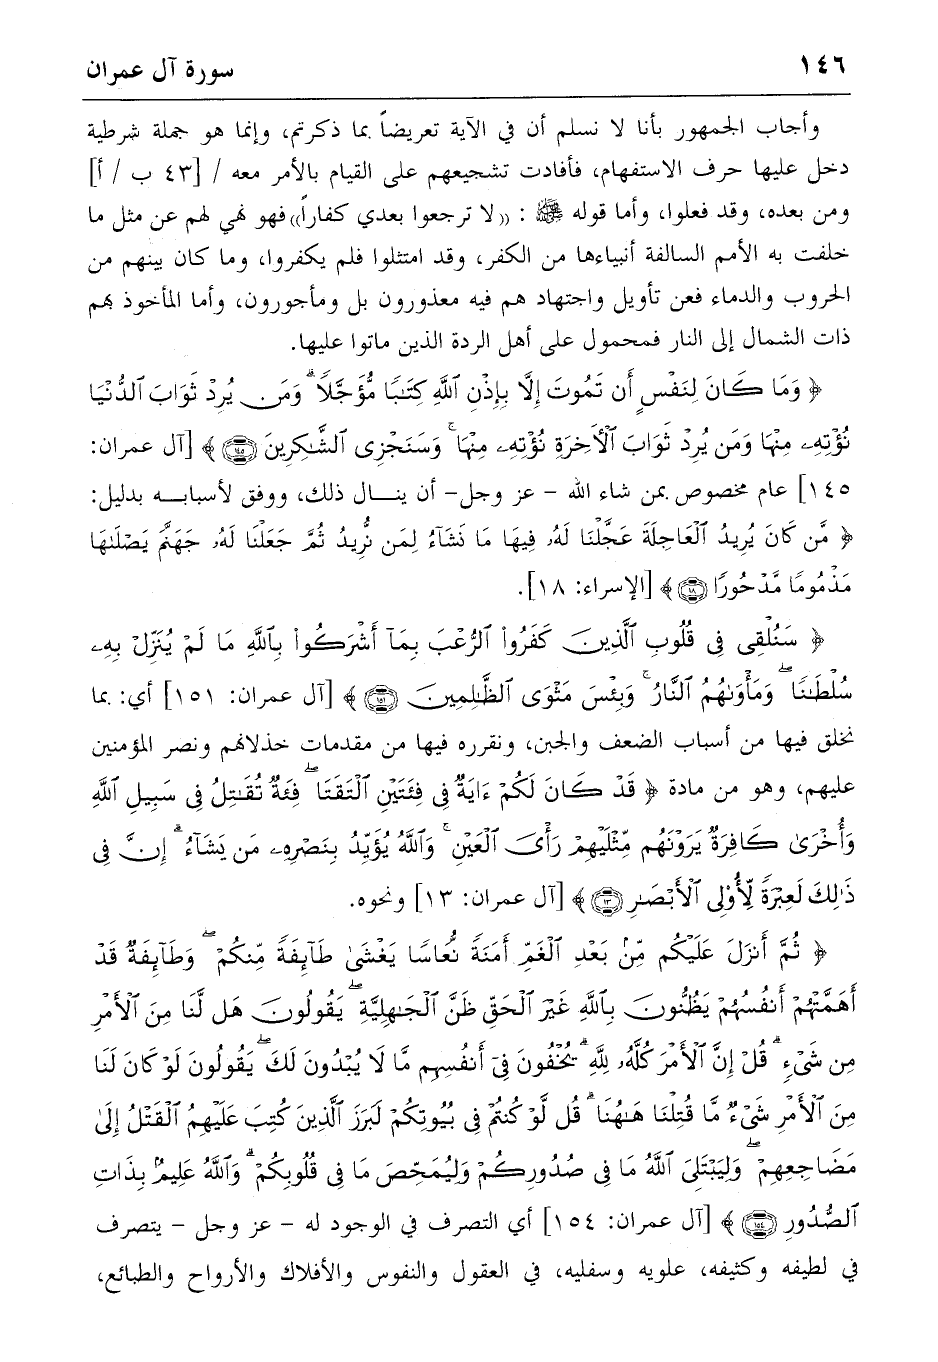 ١٤٦
سورة آل عمران
وأجاب الجمهور بأنا لا نسلم أن في الآية تعريضاً بما ذكرتم، وإنما هو جملة شرطية
دخل عليها حرف الاستفهام، فأفادت تشجيعهم على القيام بالأمر معه / [٤٣ ب / أ]
ومن بعده، وقد فعلوا، وأما قوله ﷺ : ((لا ترجعوا بعدي كفاراً)) فهو نهي لهم عن مثل ما
خلفت به الأمم السالفة أنبياءها من الكفر، وقد امتثلوا فلم يكفروا، وما كان بينهم من
الحروب والدماء فعن تأويل واجتهاد هم فيه معذورون بل ومأجورون، وأما المأخوذ بهم
ذات الشمال إلى النار فمحمول على أهل الردة الذين ماتوا عليها.
﴿ وَمَا كَانَ لِنَفْسٍ أَن تَمُوتَ إِلَّا بِإِذْنِ ٱللَّهِ كِتَٰبًا مُّؤَجَّلًا ۗ وَمَن يُرِدْ ثَوَابَ ٱلدُّنْيَا
نُؤْتِهِۦ مِنْهَا وَمَن يُرِدْ ثَوَابَ ٱلْأَخِرَةِ نُؤْتِهِۦ مِنْهَا ۚ وَسَنَجْزِى ٱلشَّٰكِرِينَ ١٤٥ ﴾ [آل عمران:
١٤٥] عام مخصوص بمن شاء الله - عز وجل- أن ينال ذلك، ووفق لأسبابه بدليل:
﴿ مَّن كَانَ يُرِيدُ ٱلْعَاجِلَةَ عَجَّلْنَا لَهُۥ فِيهَا مَا نَشَآءُ لِمَن نُّرِيدُ ثُمَّ جَعَلْنَا لَهُۥ جَهَنَّمَ يَصْلَىٰهَا
مَذْمُومًا مَّدْحُورًا ١٨ ﴾ [الإسراء: ١٨].
﴿ سَنُلْقِى فِى قُلُوبِ ٱلَّذِينَ كَفَرُوا۟ ٱلرُّعْبَ بِمَآ أَشْرَكُوا۟ بِٱللَّهِ مَا لَمْ يُنَزِّلْ بِهِۦ
سُلْطَٰنًا ۖ وَمَأْوَىٰهُمُ ٱلنَّارُ ۚ وَبِئْسَ مَثْوَى ٱلظَّٰلِمِينَ ١٥١ ﴾ [آل عمران: ١٥١] أي: بما
نخلق فيها من أسباب الضعف والجبن، ونقرره فيها من مقدمات خذلانهم ونصر المؤمنين
عليهم، وهو من مادة ﴿ قَدْ كَانَ لَكُمْ ءَايَةٌ فِى فِئَتَيْنِ ٱلْتَقَتَا ۖ فِئَةٌ تُقَٰتِلُ فِى سَبِيلِ ٱللَّهِ
وَأُخْرَىٰ كَافِرَةٌ يَرَوْنَهُم مِّثْلَيْهِمْ رَأْىَ ٱلْعَيْنِ ۚ وَٱللَّهُ يُؤَيِّدُ بِنَصْرِهِۦ مَن يَشَآءُ ۗ إِنَّ فِى
ذَٰلِكَ لَعِبْرَةً لِّأُو۟لِى ٱلْأَبْصَٰرِ ١٣ ﴾ [آل عمران: ١٣] ونحوه.
﴿ ثُمَّ أَنزَلَ عَلَيْكُم مِّنۢ بَعْدِ ٱلْغَمِّ أَمَنَةً نُّعَاسًا يَغْشَىٰ طَآئِفَةً مِّنكُمْ ۖ وَطَآئِفَةٌ قَدْ
أَهَمَّتْهُمْ أَنفُسُهُمْ يَظُنُّونَ بِٱللَّهِ غَيْرَ ٱلْحَقِّ ظَنَّ ٱلْجَٰهِلِيَّةِ ۖ يَقُولُونَ هَل لَّنَا مِنَ ٱلْأَمْرِ
مِن شَىْءٍ ۗ قُلْ إِنَّ ٱلْأَمْرَ كُلَّهُۥ لِلَّهِ ۗ يُخْفُونَ فِىٓ أَنفُسِهِم مَّا لَا يُبْدُونَ لَكَ ۖ يَقُولُونَ لَوْ كَانَ لَنَا
مِنَ ٱلْأَمْرِ شَىْءٌ مَّا قُتِلْنَا هَٰهُنَا ۗ قُل لَّوْ كُنتُمْ فِى بُيُوتِكُمْ لَبَرَزَ ٱلَّذِينَ كُتِبَ عَلَيْهِمُ ٱلْقَتْلُ إِلَىٰ
مَضَاجِعِهِمْ ۖ وَلِيَبْتَلِىَ ٱللَّهُ مَا فِى صُدُورِكُمْ وَلِيُمَحِّصَ مَا فِى قُلُوبِكُمْ ۗ وَٱللَّهُ عَلِيمٌۢ بِذَاتِ
ٱلصُّدُورِ ١٥٤ ﴾ [آل عمران: ١٥٤] أي التصرف في الوجود له - عز وجل - يتصرف
في لطيفه وكثيفه، علويه وسفليه، في العقول والنفوس والأفلاك والأرواح والطبائع،